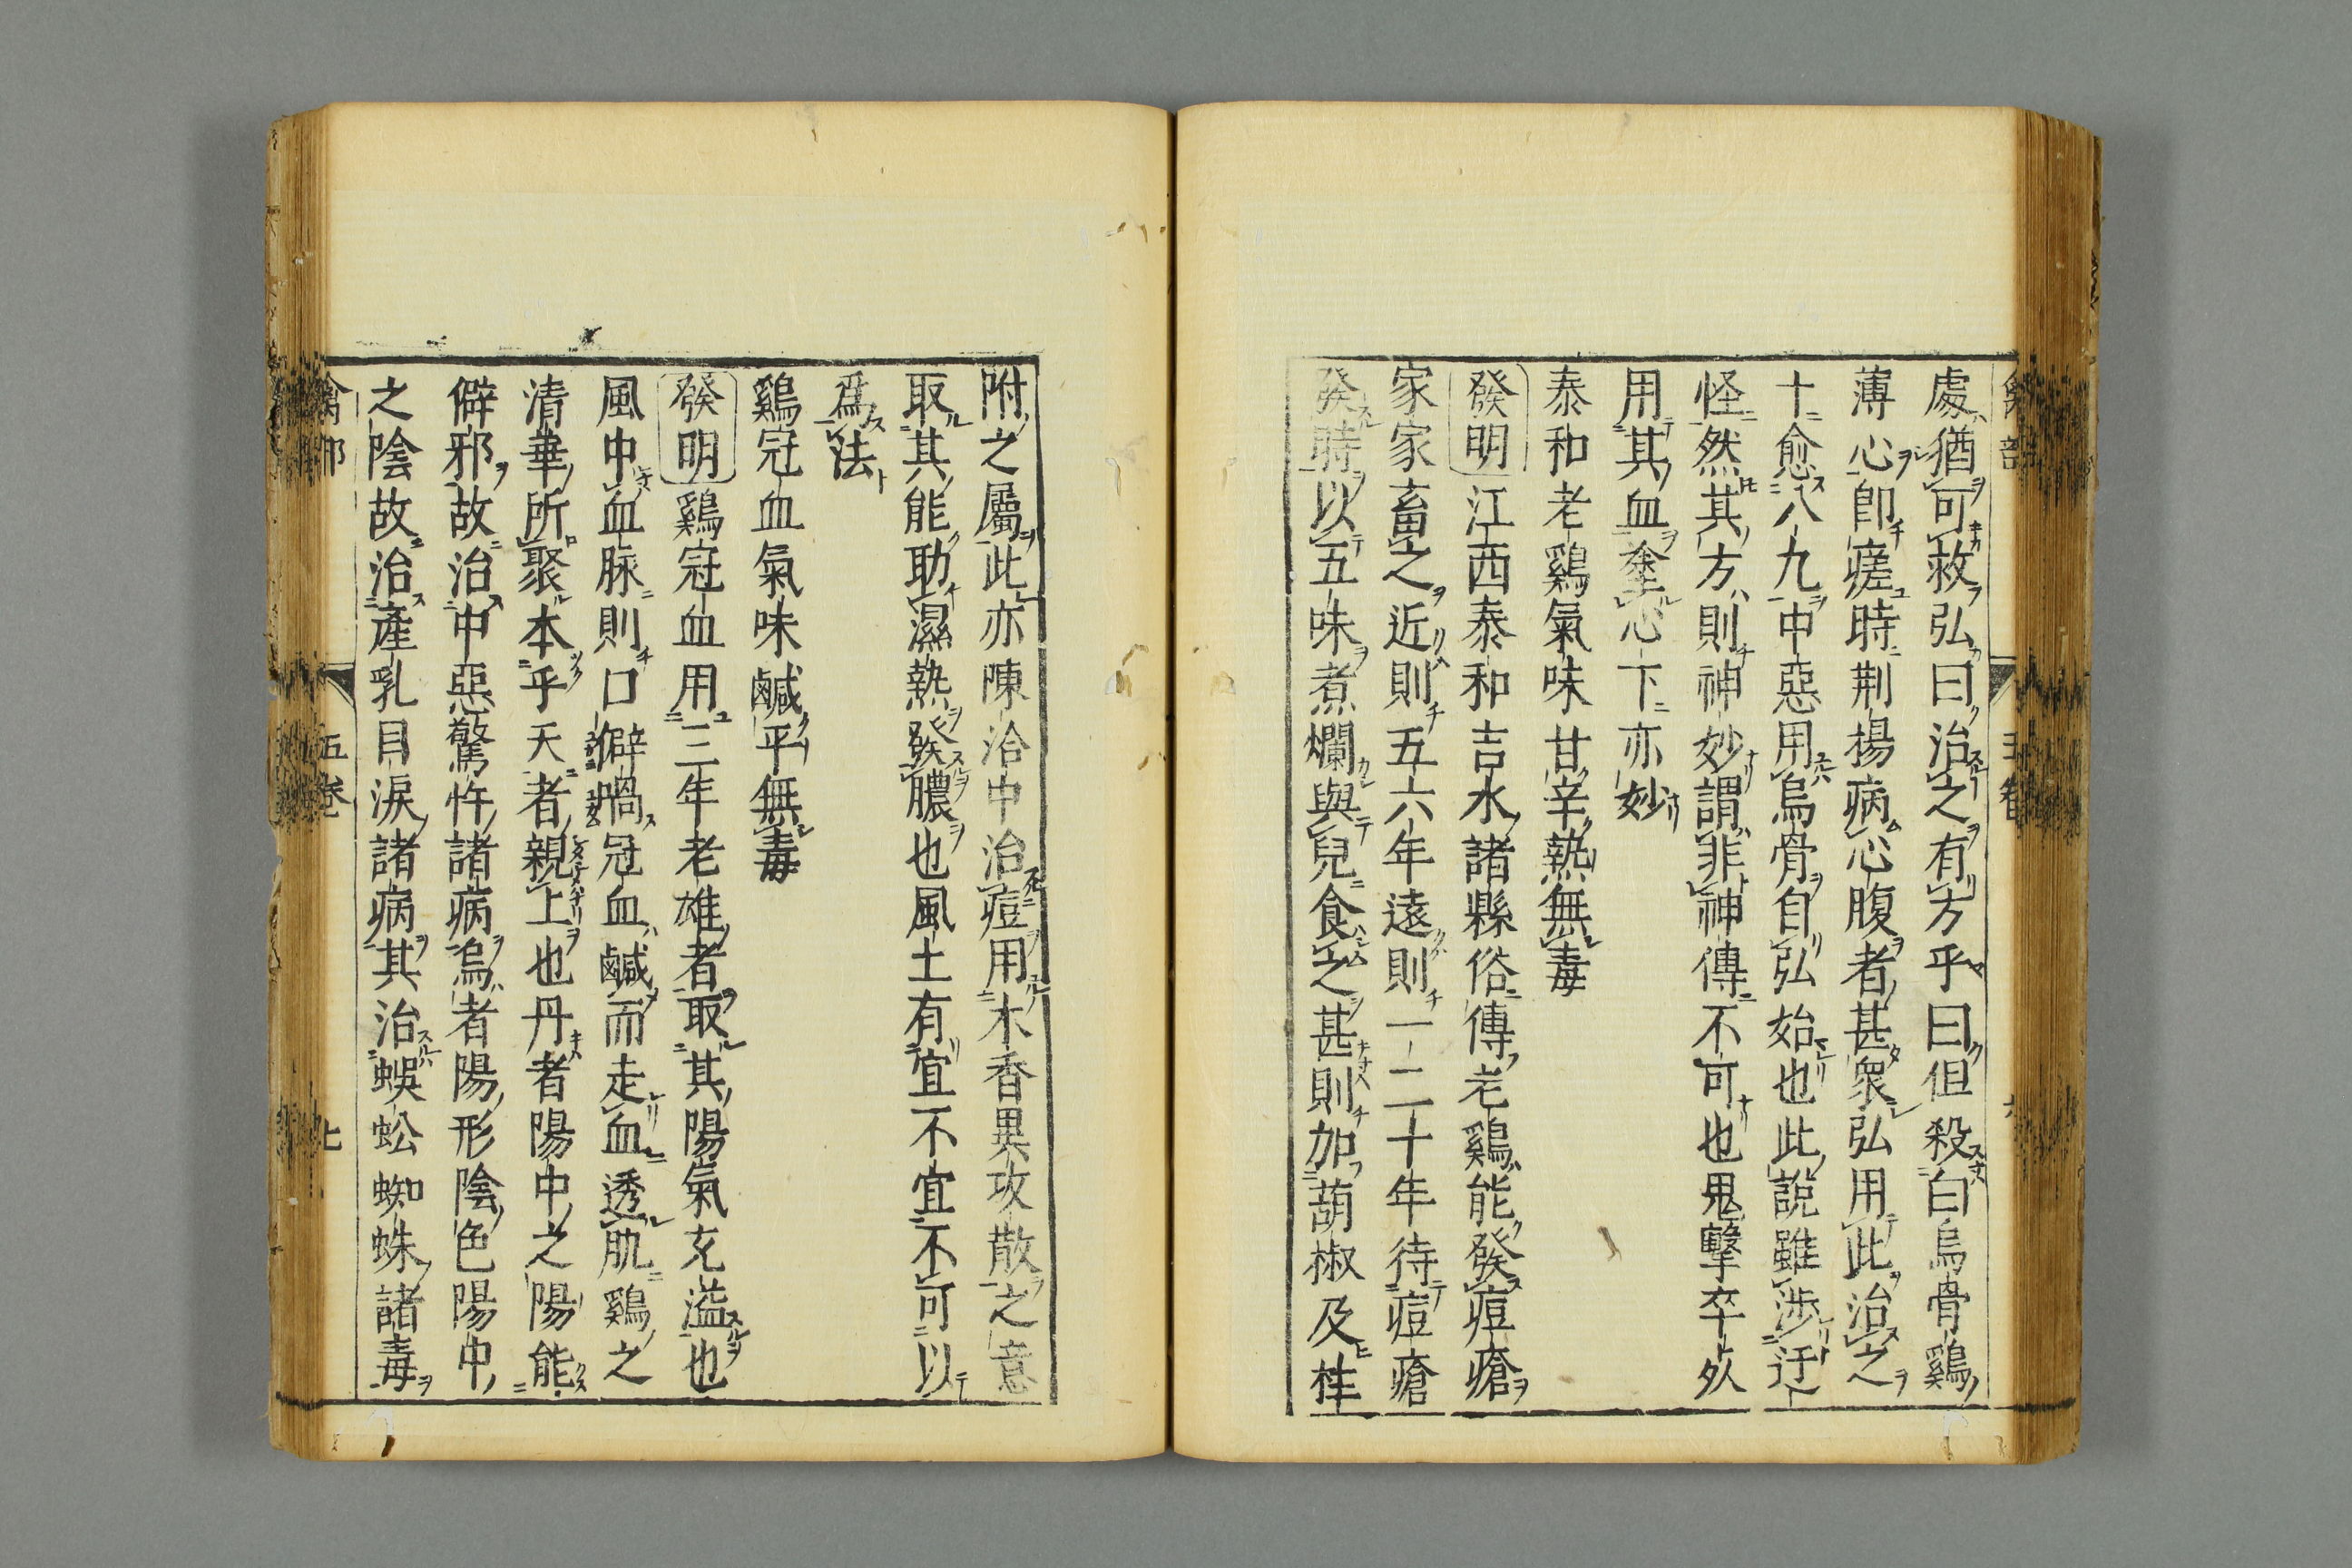 處猶可救弘曰治之有方乎曰但殺白烏骨鷄
薄心卽瘥時荆揚病心腹者甚衆弘用此治之
十愈八九中惡用烏骨自弘始也此說雖涉迂
怪然其方則神妙謂非神傳不可也鬼擊卒死
用其血塗心下亦妙
泰和老鷄氣味甘辛熱無毒
發明江西泰和吉水諸縣俗傳老鷄能發痘瘡
家家畜之近則五六年遠則一二十年待痘瘡
發時以五味煮爛與兒食之甚則加葫椒及桂
附之屬此亦陳洽中治痘用木香異攻散之意
取其能助濕熱發膿也風土有宜不宜不可以
爲法
鷄冠血氣味鹹平無毒
發明鷄冠血用三年老雄者取其陽氣充溢也
風中血脉則口僻喎冠血鹹而走血透肌鷄之
清華所聚本乎天者親上也丹者陽中之陽能
僻邪故治中惡驚忤諸病烏者陽形陰色陽中
之陰故治產乳目淚諸病其治蜈蚣蜘蛛諸毒
禽部 五卷 七